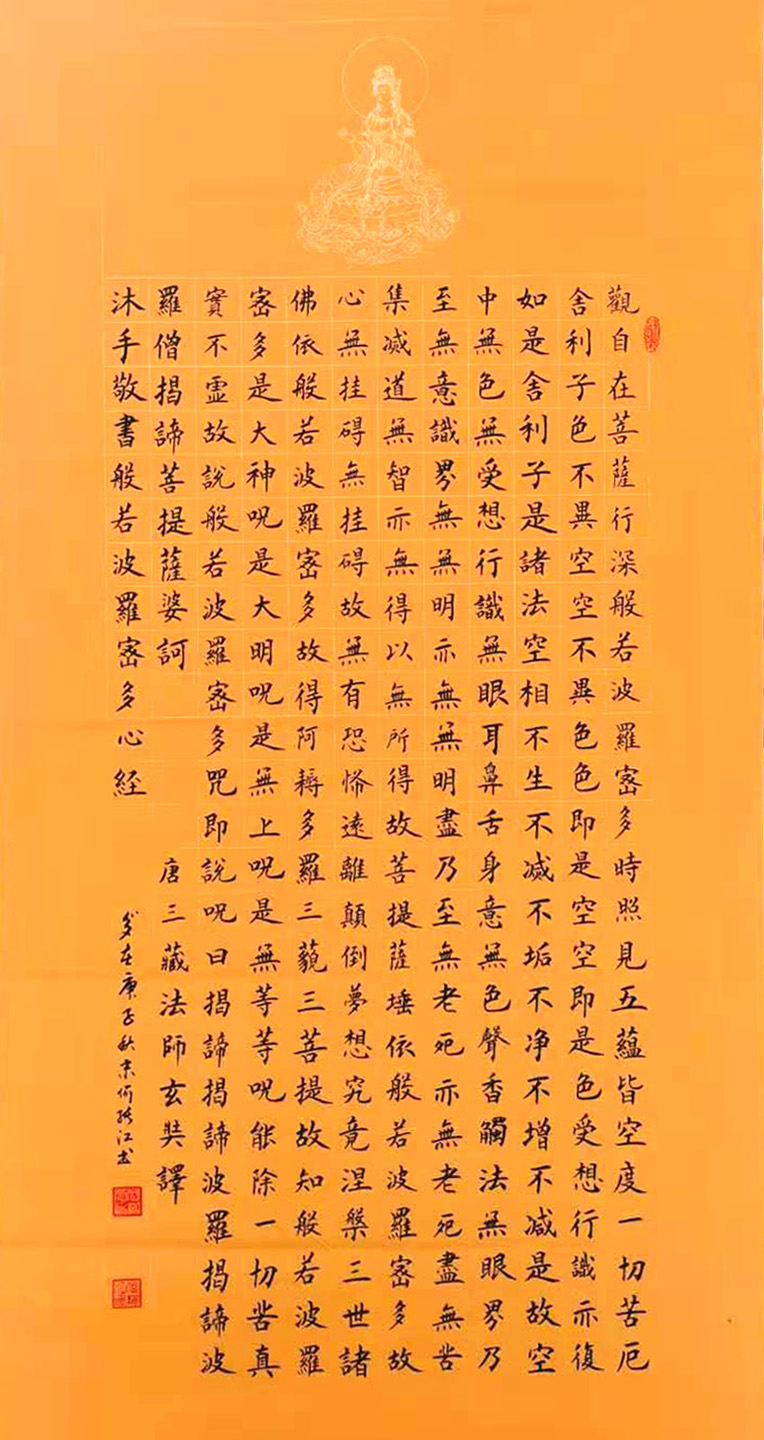 觀自在菩薩行深般若波羅密多時照見五蘊皆空度一切苦厄
舍利子色不異空空不異色色即是空空即是色受想行識亦復
如是舍利子是諸法空相不生不滅不垢不净不增不减是故空
中無色無受想行識無眼耳鼻舌身意無色聲香觸法無眼界乃
至無意識界無無明亦無無明盡乃至無老死亦無老死盡無苦
集滅道無智亦無得以無所得故菩提薩埵依般若波羅密多故
心無挂碍無挂碍故無有恐怖遠離顛倒夢想究竟涅槃三世諸
佛依般若波羅密多故得阿耨多羅三藐三菩提故知般若波羅
密多是大神呪是大明呪是無上呪是無等等呪能除一切苦真
實不虛故說般若波羅密多咒即說呪曰揭諦揭諦波羅揭諦波
羅僧揭諦菩提薩婆訶 唐三藏法師玄奘譯
沐手敬書般若波羅密多心経
歲在庚子秋 江书